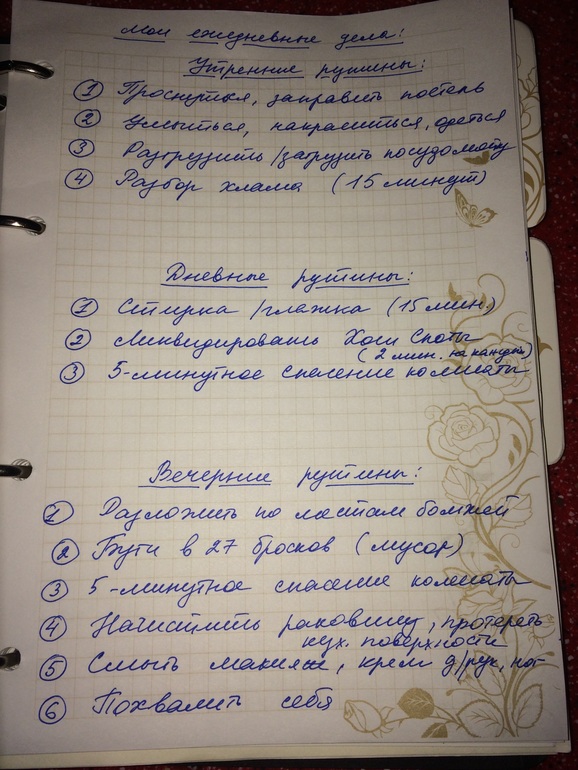 Мои ежедневные дела:
Утренние рутины:
1 Проснуться, заправить постель
2 Умыться, накраситься, одеться
3 Разгрузить/загрузить посудомойку
4 Разбор хлама (15 минут)
Дневные рутины:
1 Стирка/глажка (15 мин.)
2 Ликвидировать Хот Споты
(2 мин. на каждый)
3 5-минутное спасение комнаты
Вечерние рутины:
1 Разложить по местам бомжей
2 Буги в 27 бросков (мусор)
3 5-минутное спасение комнаты
4 Начистить раковину, протереть
кух. поверхности
5 Смыть макияж, крем д/рук, ног
6 Похвалить себя